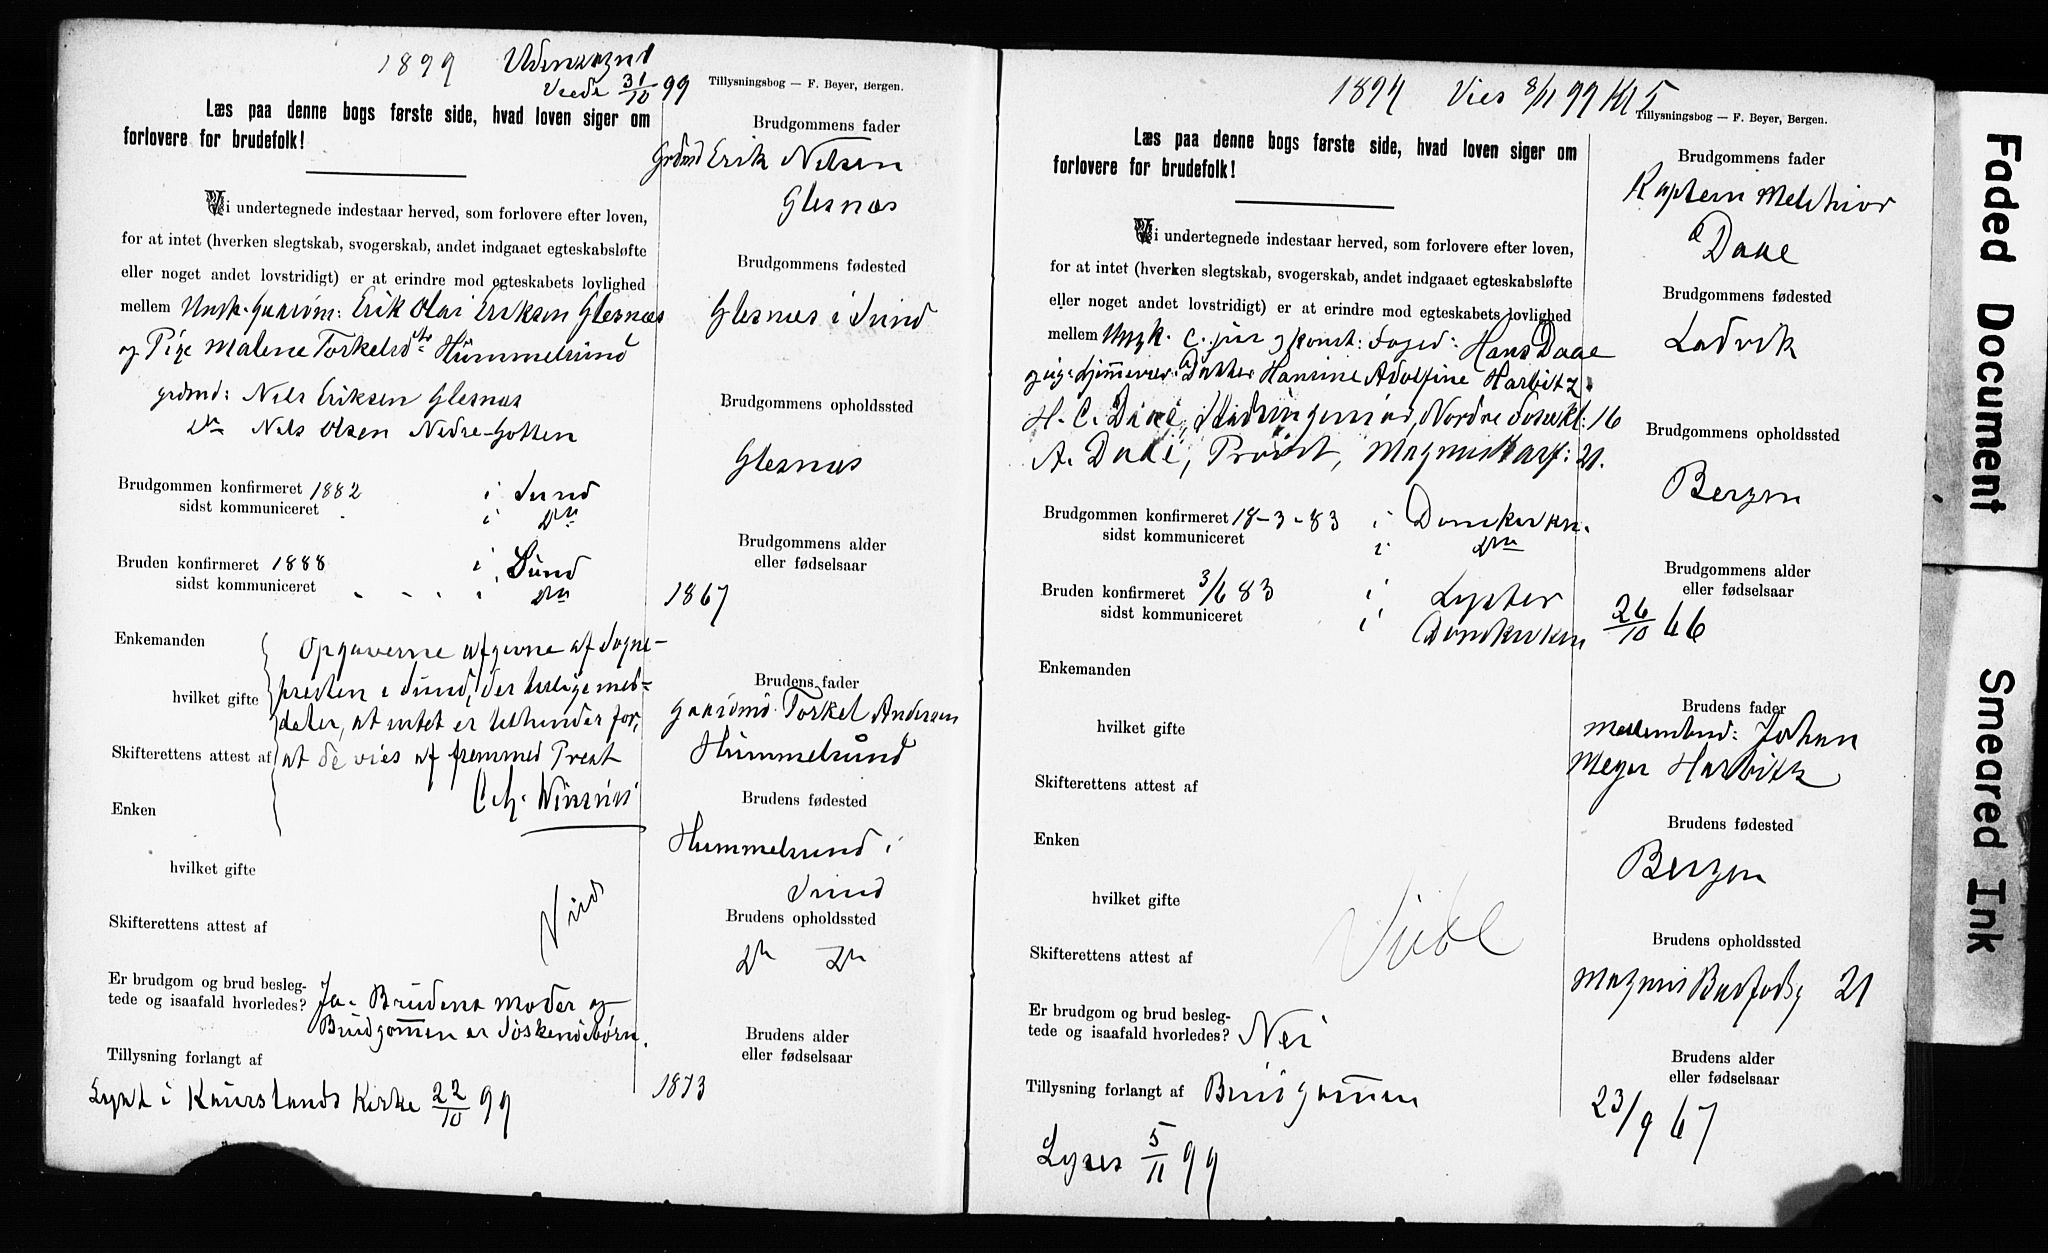 1899 Udensogns
Viede 31/10 99
Tillysningsbog — F. Beyer, Bergen.
Læs paa denne bogs første side, hvad loven siger om
forlovere for brudefolk!
Vi undertegnede indestaar herved, som forlovere efter loven,
for at intet (hverken slegtskab, svogerskab, andet indgaaet egteskabsløfte
eller noget andet lovstridigt) er at erindre mod egteskabets lovlighed
mellem Ungk. Erik Olai Eriksen Glesnæs
og Pige Malene Torkelsdtr Hummelsund
grdmd: Nils Eriksen Glesnæs
do Nels Olsen Nedre-Gotten
Brudgommen konfirmeret 1882 i Sund
sidst kommuniceret i do
Bruden konfirmeret 1888 i Sund
sidst kommuniceret " " " i do
Enkemanden
hvilket gifte
Skifterettens attest af
Opgaverne afgivne af Sogne-
presten i Sund, der tillige med-
deler, at intet er til hinder for,
at de vies af fremmed Prest
Enken
hvilket gifte
Skifterettens attest af
Viede
Er brudgom og brud besleg-
tede og isaafald hvorledes? Ja. Brudens moder og
Brudgommen er Søskendebørn.
Tillysning forlangt af
Lyst i Knarstands Kirke 22/10 99
Brudgommens fader
Grdmd Erik Nilsen
Glesnæs
Brudgommens fødested
Glesnæs i Sund
Brudgommens opholdssted
Glesnæs
Brudgommens alder
eller fødselsaar
1867
Brudens fader
gaardmd. Torkel Andersen
Hummelsund
Brudens fødested
Hummelsund i
Sund
Brudens opholdssted
do do
Brudens alder
eller fødselsaar
1873
1899 Vies 8/11 99 Kl 5
Tillysningsbog — F. Beyer, Bergen.
Læs paa denne bogs første side, hvad loven siger om
forlovere for brudefolk!
Vi undertegnede indestaar herved, som forlovere efter loven,
for at intet (hverken slegtskab, svogerskab, andet indgaaet egteskabsløfte
eller noget andet lovstridigt) er at erindre mod egteskabets lovlighed
mellem Ungk. C. jur og konst: Foged: Hans Daae
og Pige Datter Hansine Adolfine Harbitz.
H. C. Daae, Stadsingeniør, Nordre 16
A. Daae, Provst, Magnus Barf: 21.
Brudgommen konfirmeret 18-3-83 i Domkirken.
sidst kommuniceret i do
Bruden konfirmeret 3/6 83 i Lyster
sidst kommuniceret i Domkirken
Enkemanden
hvilket gifte
Skifterettens attest af
Enken
hvilket gifte
Skifterettens attest af
Viede
Er brudgom og brud besleg-
tede og isaafald hvorledes? Nei
Tillysning forlangt af Brudgommen
Lyses 5/11 99
Brudgommens fader
Kaptein Melchior
Daae
Brudgommens fødested
Ladvik
Brudgommens opholdssted
Bergen
Brudgommens alder
eller fødselsaar
26/10 66
Brudens fader
Johan
Meyer Harbitz
Brudens fødested
Bergen
Brudens opholdssted
Magnus Barfodsg 21
Brudens alder
eller fødselsaar
23/9 67
Faded Document
Smeared Ink